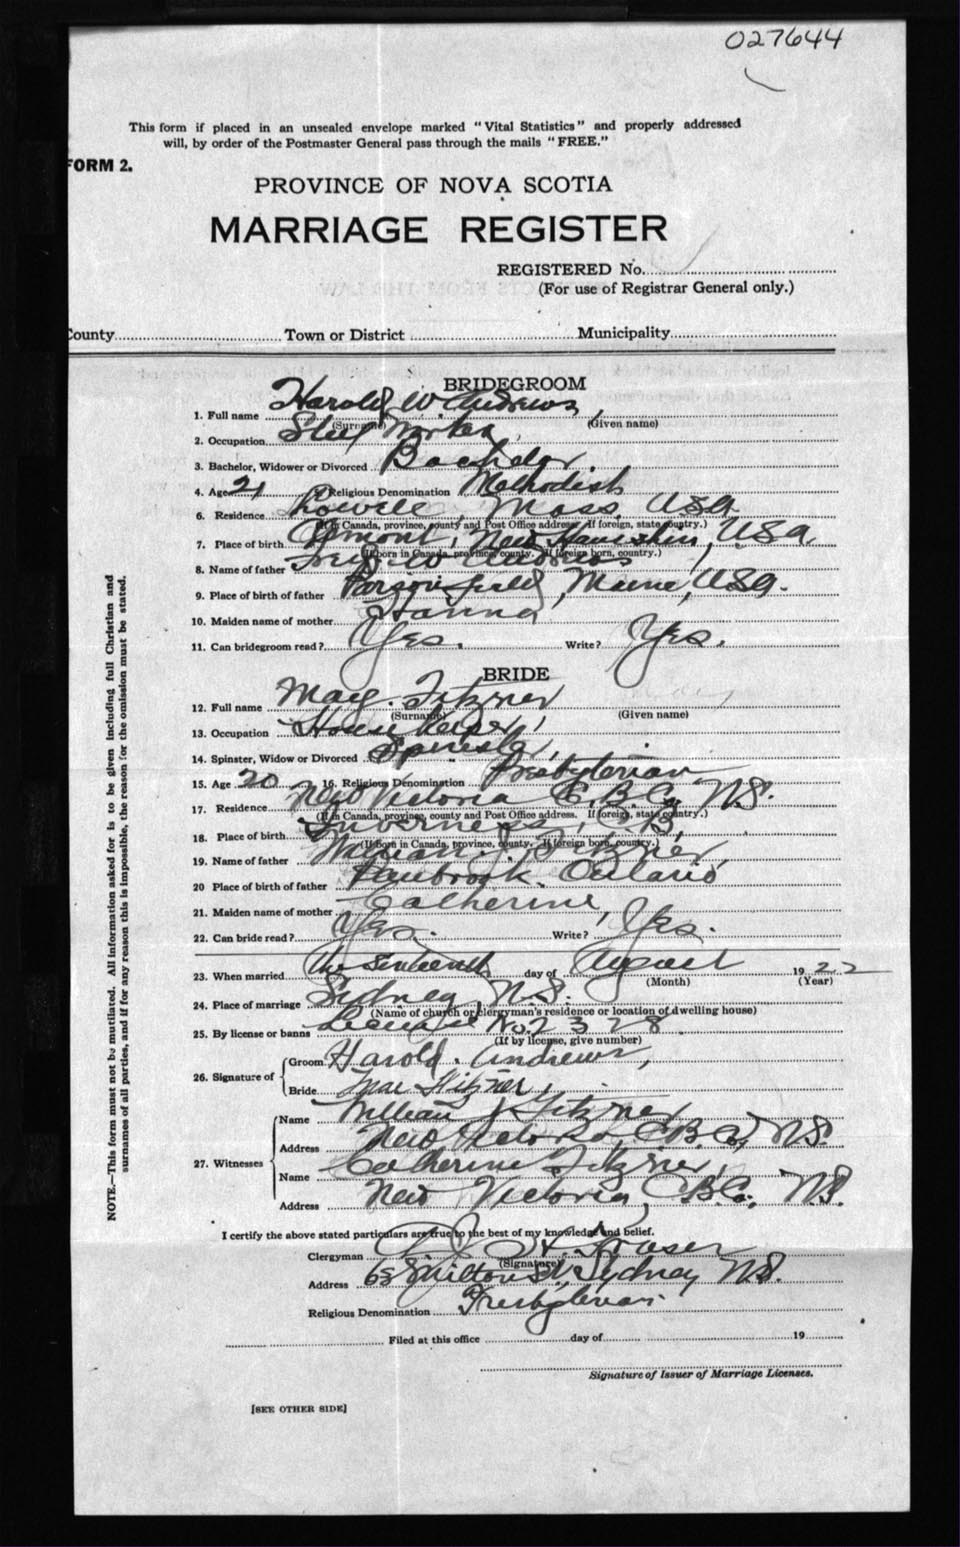 027644
This form if placed in an unsealed envelope marked "Vital Statistics" and properly addressed
will, by order of the Postmaster General pass through the mails "FREE."
FORM 2.
PROVINCE OF NOVA SCOTIA
MARRIAGE REGISTER
REGISTERED No.
(For use of Registrar General only.)
County Town or District Municipality
BRIDEGROOM
1. Full name Harold W. Andrews,
(Surname) (Given name)
2. Occupation Steel Worker,
3. Bachelor, Widower or Divorced Bachelor
4. Age 21 Religious Denomination Methodist
6. Residence Lowell, Mass. USA
(If in Canada, province, county and Post Office address. If foreign, state country.)
7. Place of birth New Hampshire, USA
(If born in Canada, province, county. If foreign born, country.)
8. Name of father Fred W Andrews
9. Place of birth of father Parsonsfield, Maine, USA.
10. Maiden name of mother Hanna
11. Can bridegroom read? Yes. Write? Yes.
BRIDE
12. Full name May. Fitzner
(Surname) (Given name)
13. Occupation House Keeper,
14. Spinster, Widow or Divorced Spinster,
15. Age 20 16. Religious Denomination Presbyterian
17. Residence New Victoria C.B.Co. N.S.
(If in Canada, province, county and Post Office address. If foreign, state country.)
18. Place of birth Inverness, C.B,
(If born in Canada, province, county. If foreign born, country.)
19. Name of father William. J. Fitzner,
20 Place of birth of father Ontario
21. Maiden name of mother Catherine,
22. Can bride read? Yes. Write? Yes.
23. When married the Sixteenth day of August 1922
(Month) (Year)
24. Place of marriage Sydney, N.S.
(Name of church or clergyman's residence or location of dwelling house)
25. By license or banns License No. 2378
(If by license, give number)
26. Signature of
Groom Harold. Andrews,
Bride Mae Fitzner,
27. Witnesses
Name William J Fitzner
Address New Victoria, C.B.Co, N.S.
Name Catherine Fitzner,
Address New Victoria, C.B.Co. N.S.
I certify the above stated particulars are true to the best of my knowledge and belief.
Clergyman H. Fraser
(Signature)
Address 63 Milton St, Sydney N.S.
Religious Denomination Presbyterian.
Filed at this office day of 19
Signature of Issuer of Marriage Licenses.
[SEE OTHER SIDE]
NOTE.—This form must not be mutilated. All information asked for is to be given including full Christian and
surnames of all parties, and if for any reason this is impossible, the reason for the omission must be stated.